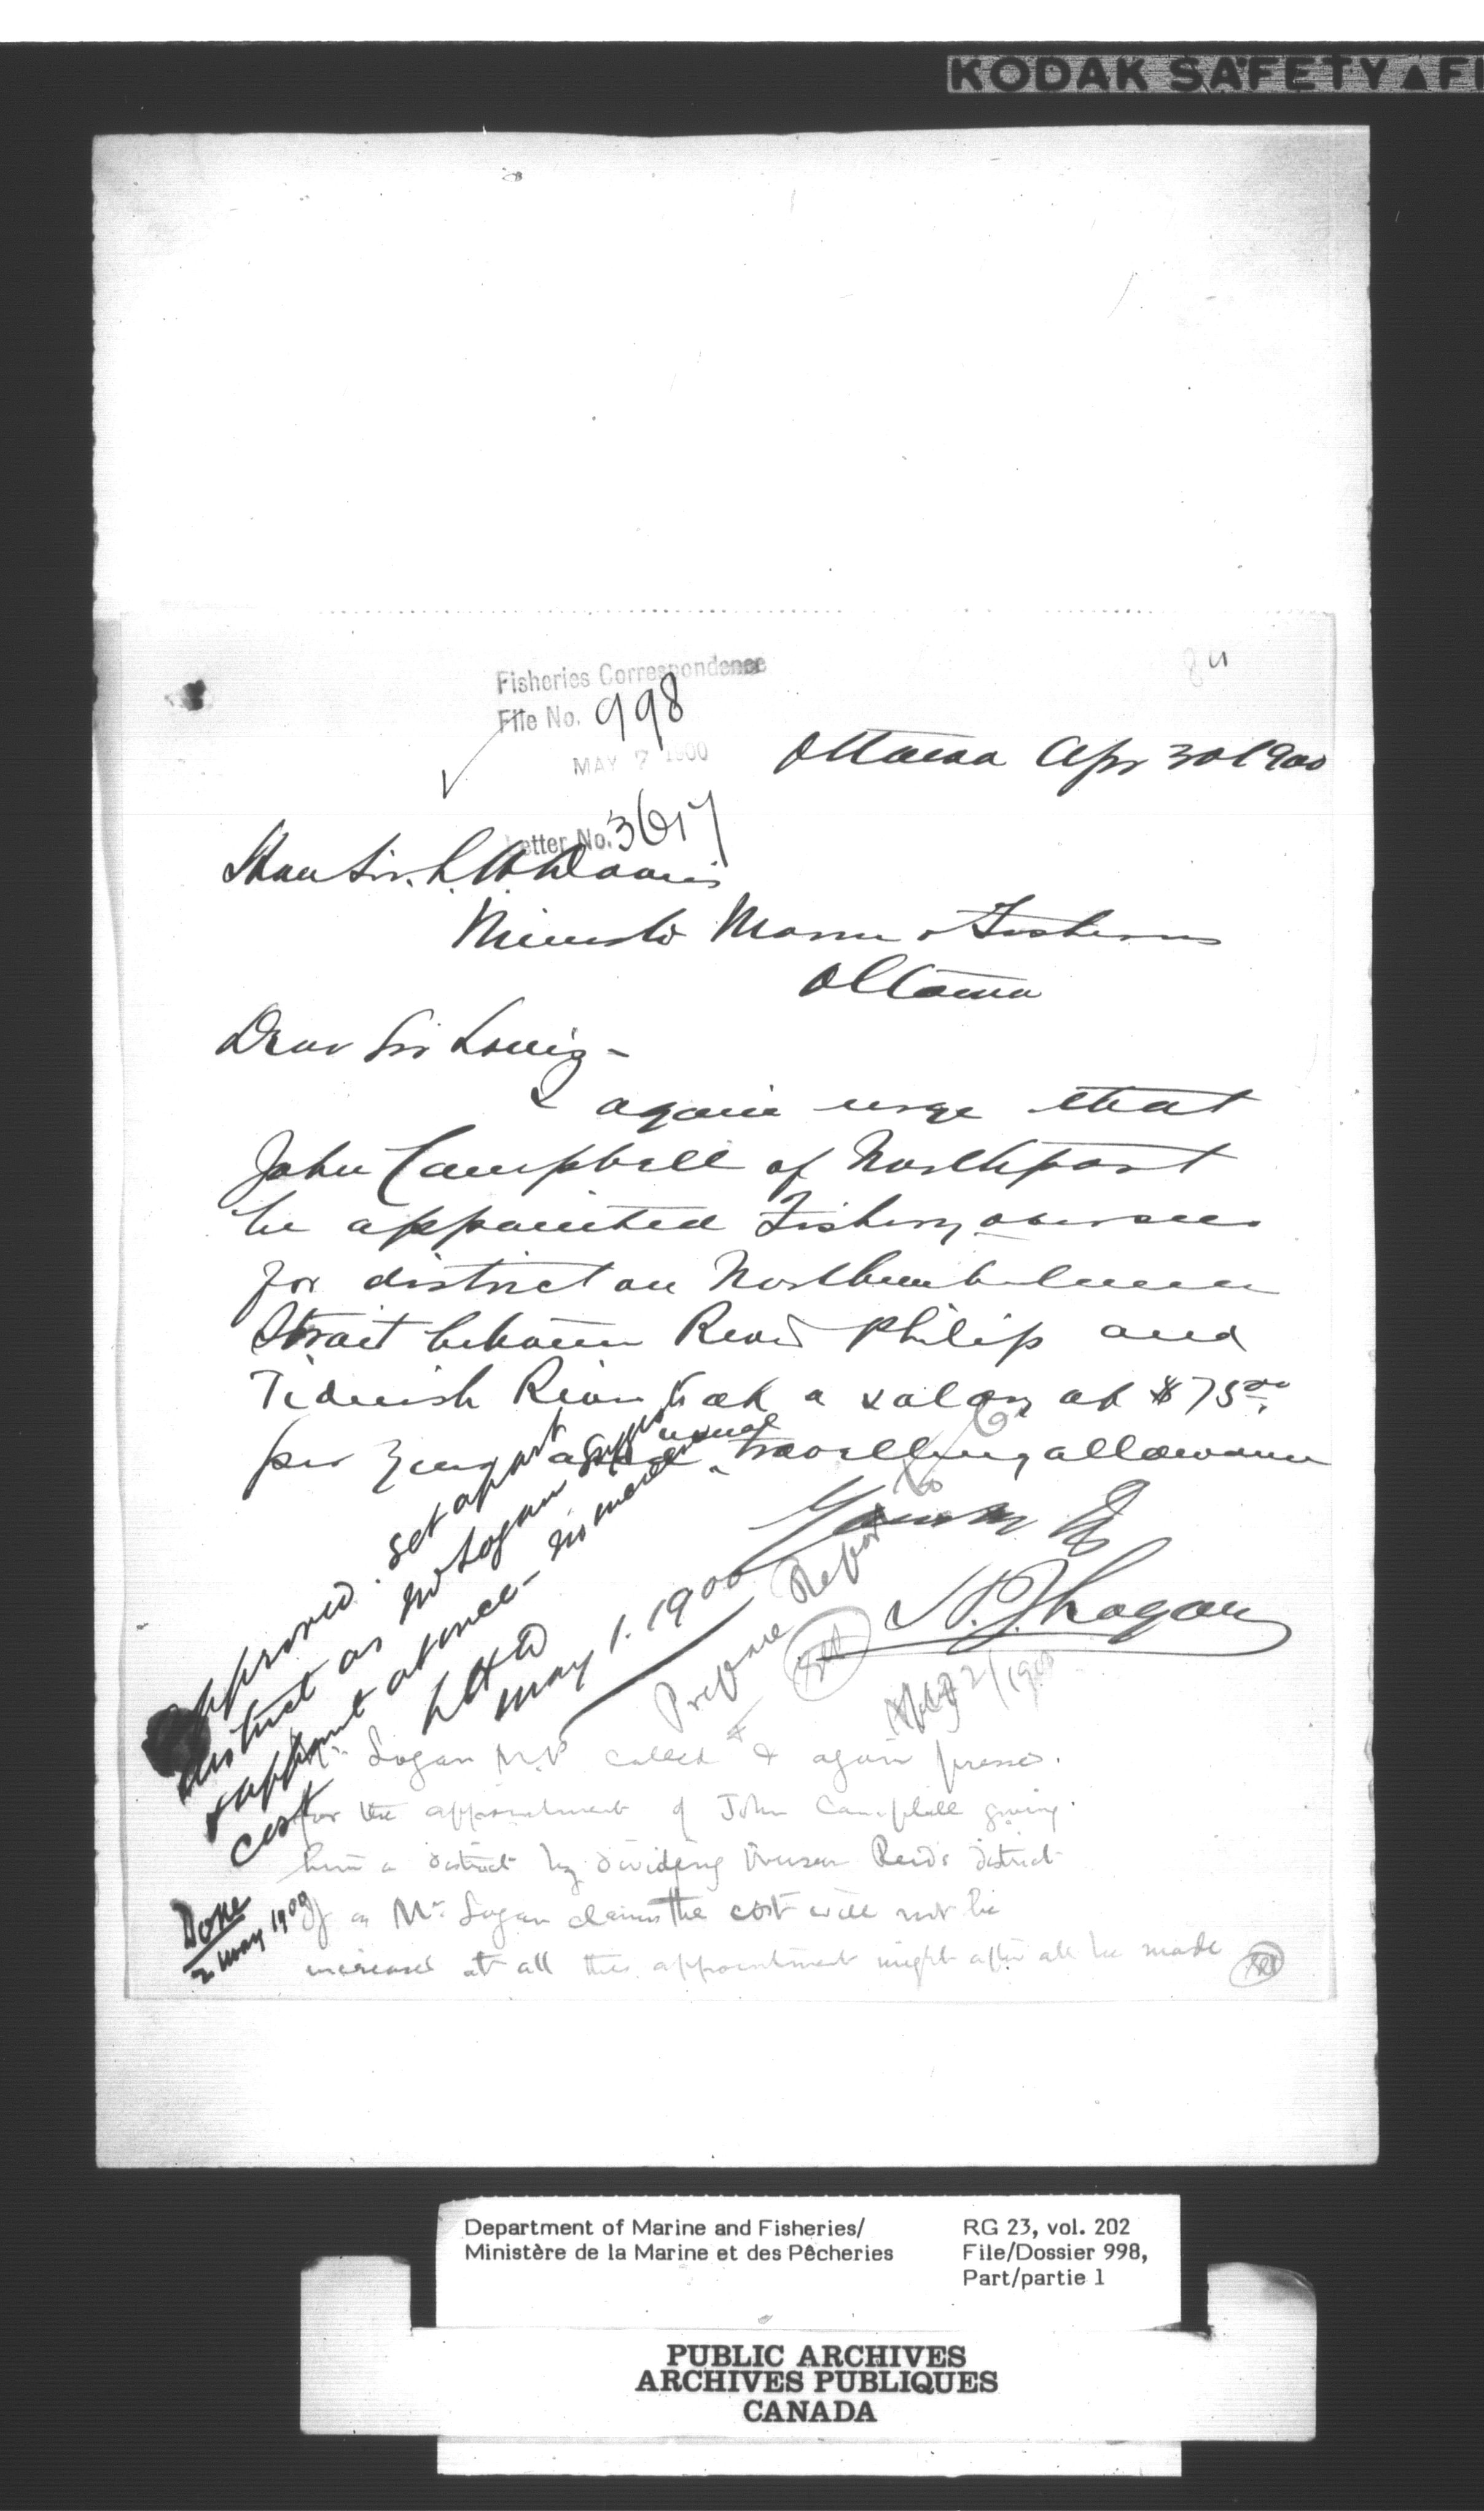 KODAK SAFETY ▲ FI
84
Fisheries Correspondence
File No. 998
MAY 7 1900
Letter No. 3617
Ottawa Apr 30 1900
Hon Sir L. H. Davies
Minister Marine & Fisheries
Ottawa
Dear Sir Louis -
I again urge that
John Campbell of Northport
be appointed Fishery overseer
for district on Northumberland
Strait between River Philip and
Tidnish River at a salary of $75.00
per year and usual travelling allowance
Yours
H. J. Logan
Approved. set apart
district as Mr Logan suggests
& appoint at once - no increased
cost
LHD
May 1. 1900
Prepare Report
May 2/1900
Mr. Logan M.P. called & again presses
for the appointment of John Campbell giving
him a district by dividing Overseer Reid's district
If as Mr. Logan claims the cost will not be
increased at all this appointment might after all be made
Done
2 May 1900
Department of Marine and Fisheries/
Ministère de la Marine et des Pêcheries
RG 23, vol. 202
File/Dossier 998,
Part/partie 1
PUBLIC ARCHIVES
ARCHIVES PUBLIQUES
CANADA